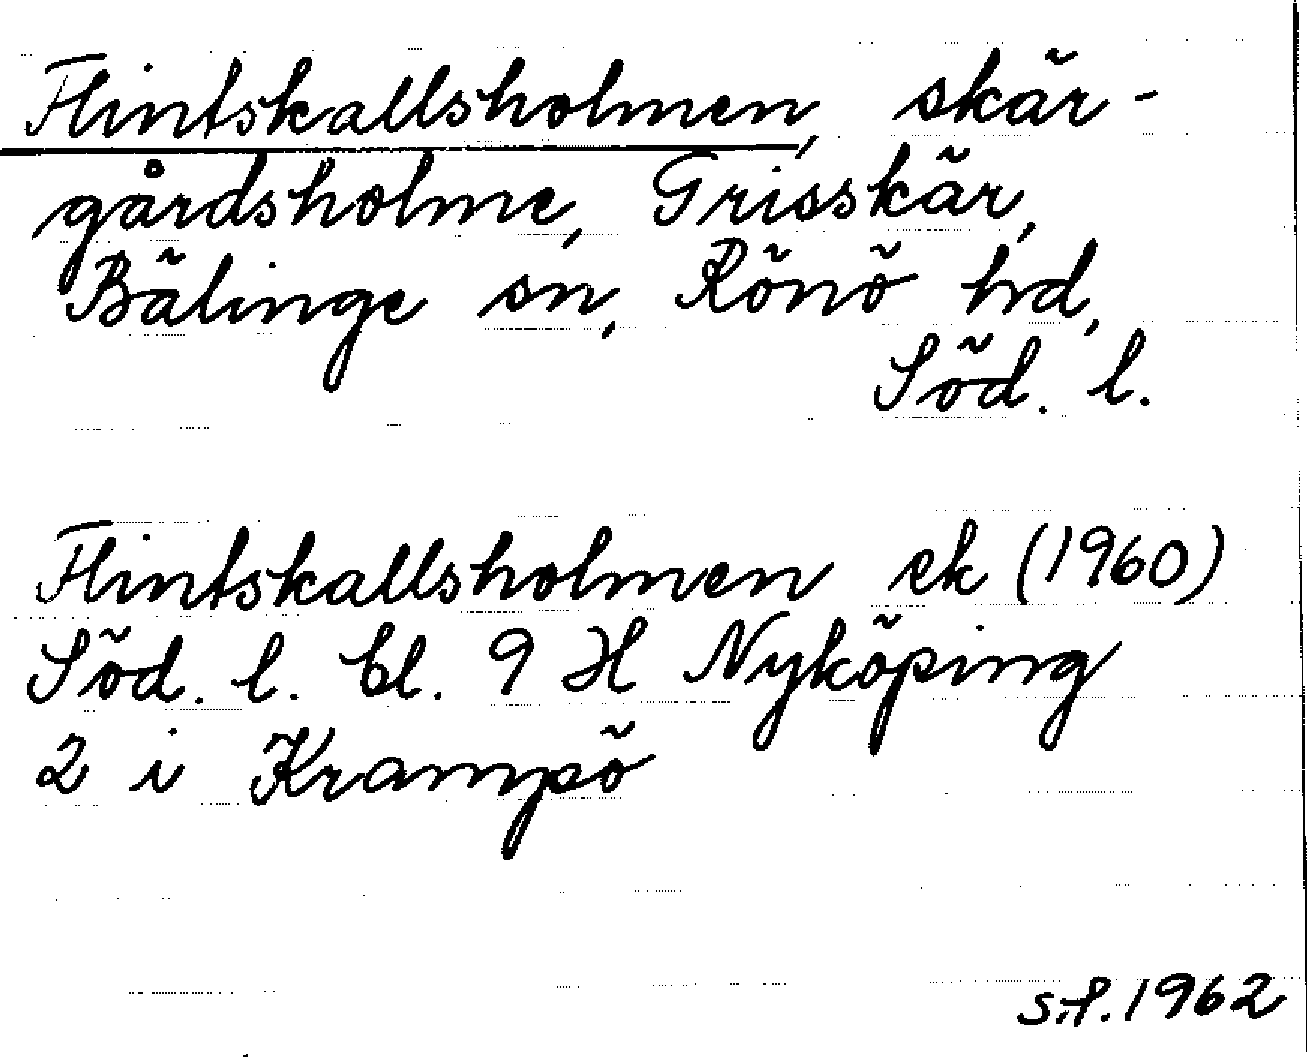 Flintskallsholmen, skär-
gårdsholme, Grisskär,
Bälinge sn, Rönö hd,
Söd. l.
Flintskallsholmen ek (1960)
Söd. l. bl. 9 H Nyköping
2 i Krampö
s.f. 1962